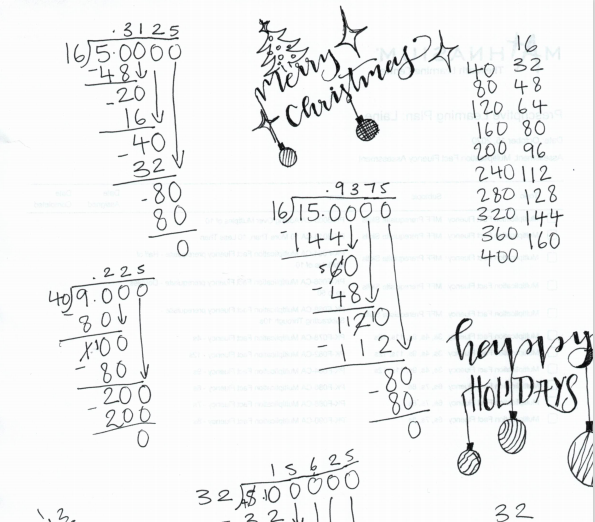 .3125
16)5.0000
-48
-20
16
-40
32
-80
80
0
Merry
Christmas
16
40 32
80 48
120 64
160 80
200 96
240 112
280 128
320 144
360 160
400
.9375
16)15.0000
-144
60
-48
120
-112
-80
80
0
.225
40)9.000
-80
100
-80
-200
200
0
happy
HOLIDAYS
15625
32
-32
32